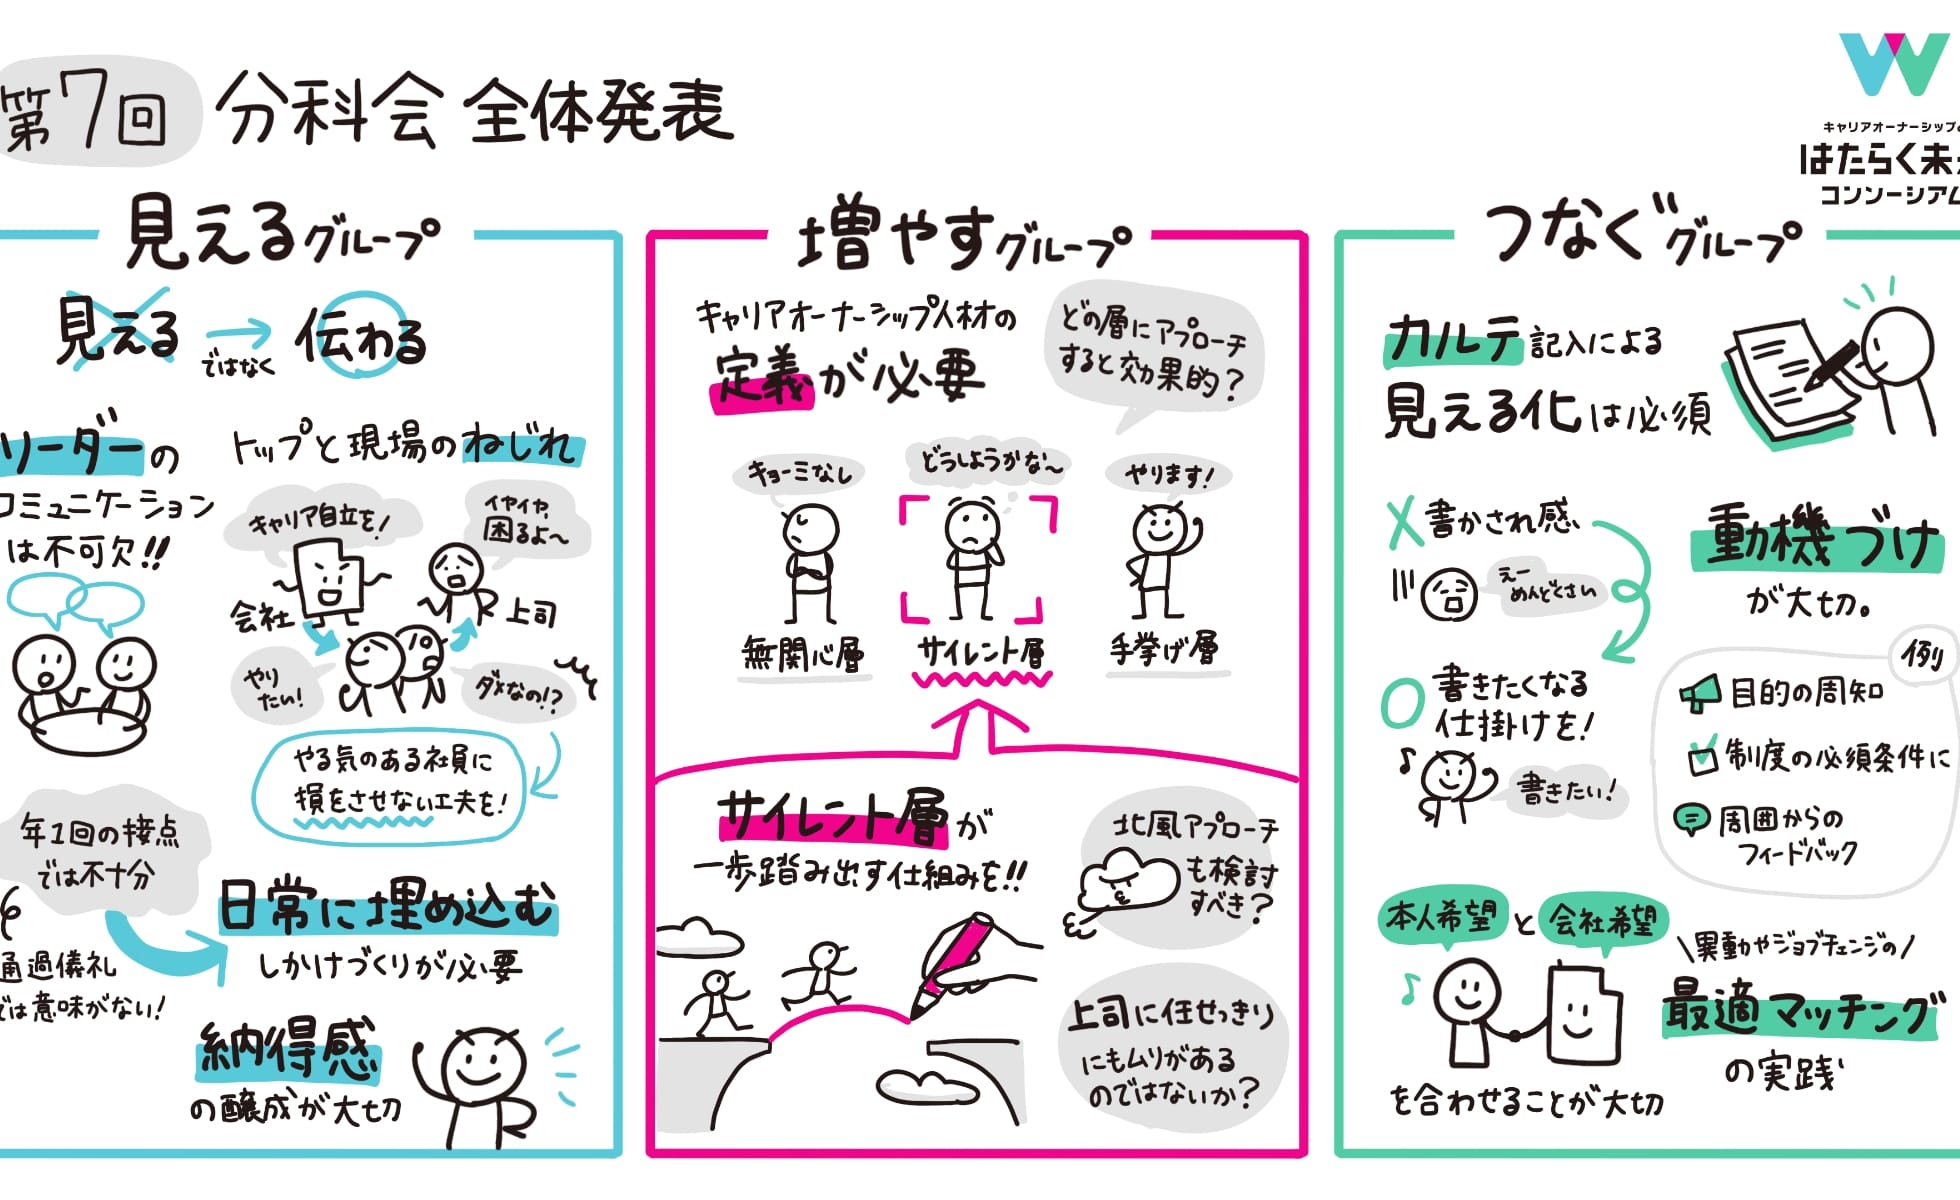 第7回 分科会 全体発表
キャリアオーナーシップ
はたらく未
コンソーシアム
見えるグループ
見える
ではなく
伝わる
リーダーの
コミュニケーション
は不可欠!!
トップと現場のねじれ
キャリア自立を!
イヤイヤ、
困るよ〜
会社
上司
やり
たい!
ダメなの!?
やる気のある社員に
損をさせない工夫を!
年1回の接点
では不十分
通過儀礼
では意味がない!
日常に埋め込む
しかけづくりが必要
納得感
の醸成が大切
増やすグループ
キャリアオーナーシップ人材の
定義が必要
どの層にアプローチ
すると効果的?
キョーミなし
どうしようかな〜
やります!
無関心層
サイレント層
手挙げ層
サイレント層が
一歩踏み出す仕組みを!!
北風アプローチ
も検討
すべき?
上司に任せっきり
にもムリがある
のではないか?
つなぐグループ
カルテ記入による
見える化は必須
X 書かされ感
えー
めんどくさい
動機づけ
が大切。
O 書きたくなる
仕掛けを!
書きたい!
例
目的の周知
制度の必須条件に
周囲からの
フィードバック
本人希望と会社希望
を合わせることが大切
\異動やジョブチェンジの/
最適マッチング
の実践